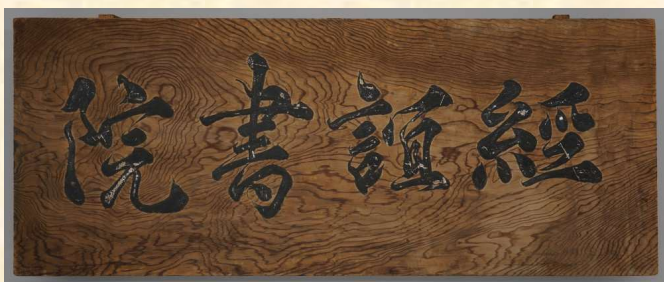 經誼書院